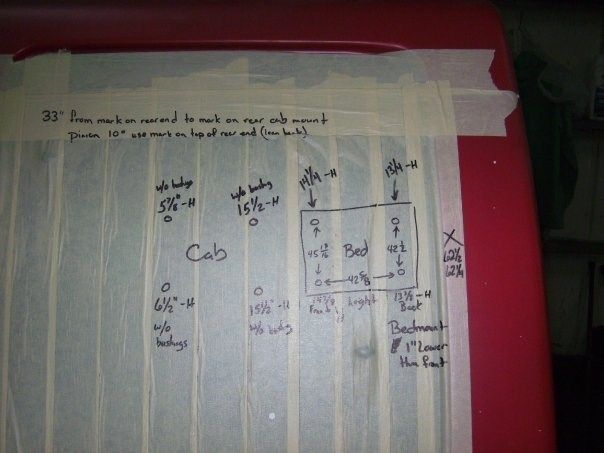 33" from mark on rearend to mark on rear cab mount
Pinion 10" use mark on top of rear end
w/o
5 7/8"-H
w/o bushing
15 1/2-H
14 1/4-H
13 1/4-H
Cab
45
Bed
42 1/2
42 5/8
X
62 1/2
62 1/4
6 1/2"-H
w/o
bushings
15 1/2"-H
w/o
Front
Height
13 1/2-H
Back
Bedmount
1" Lower
than front